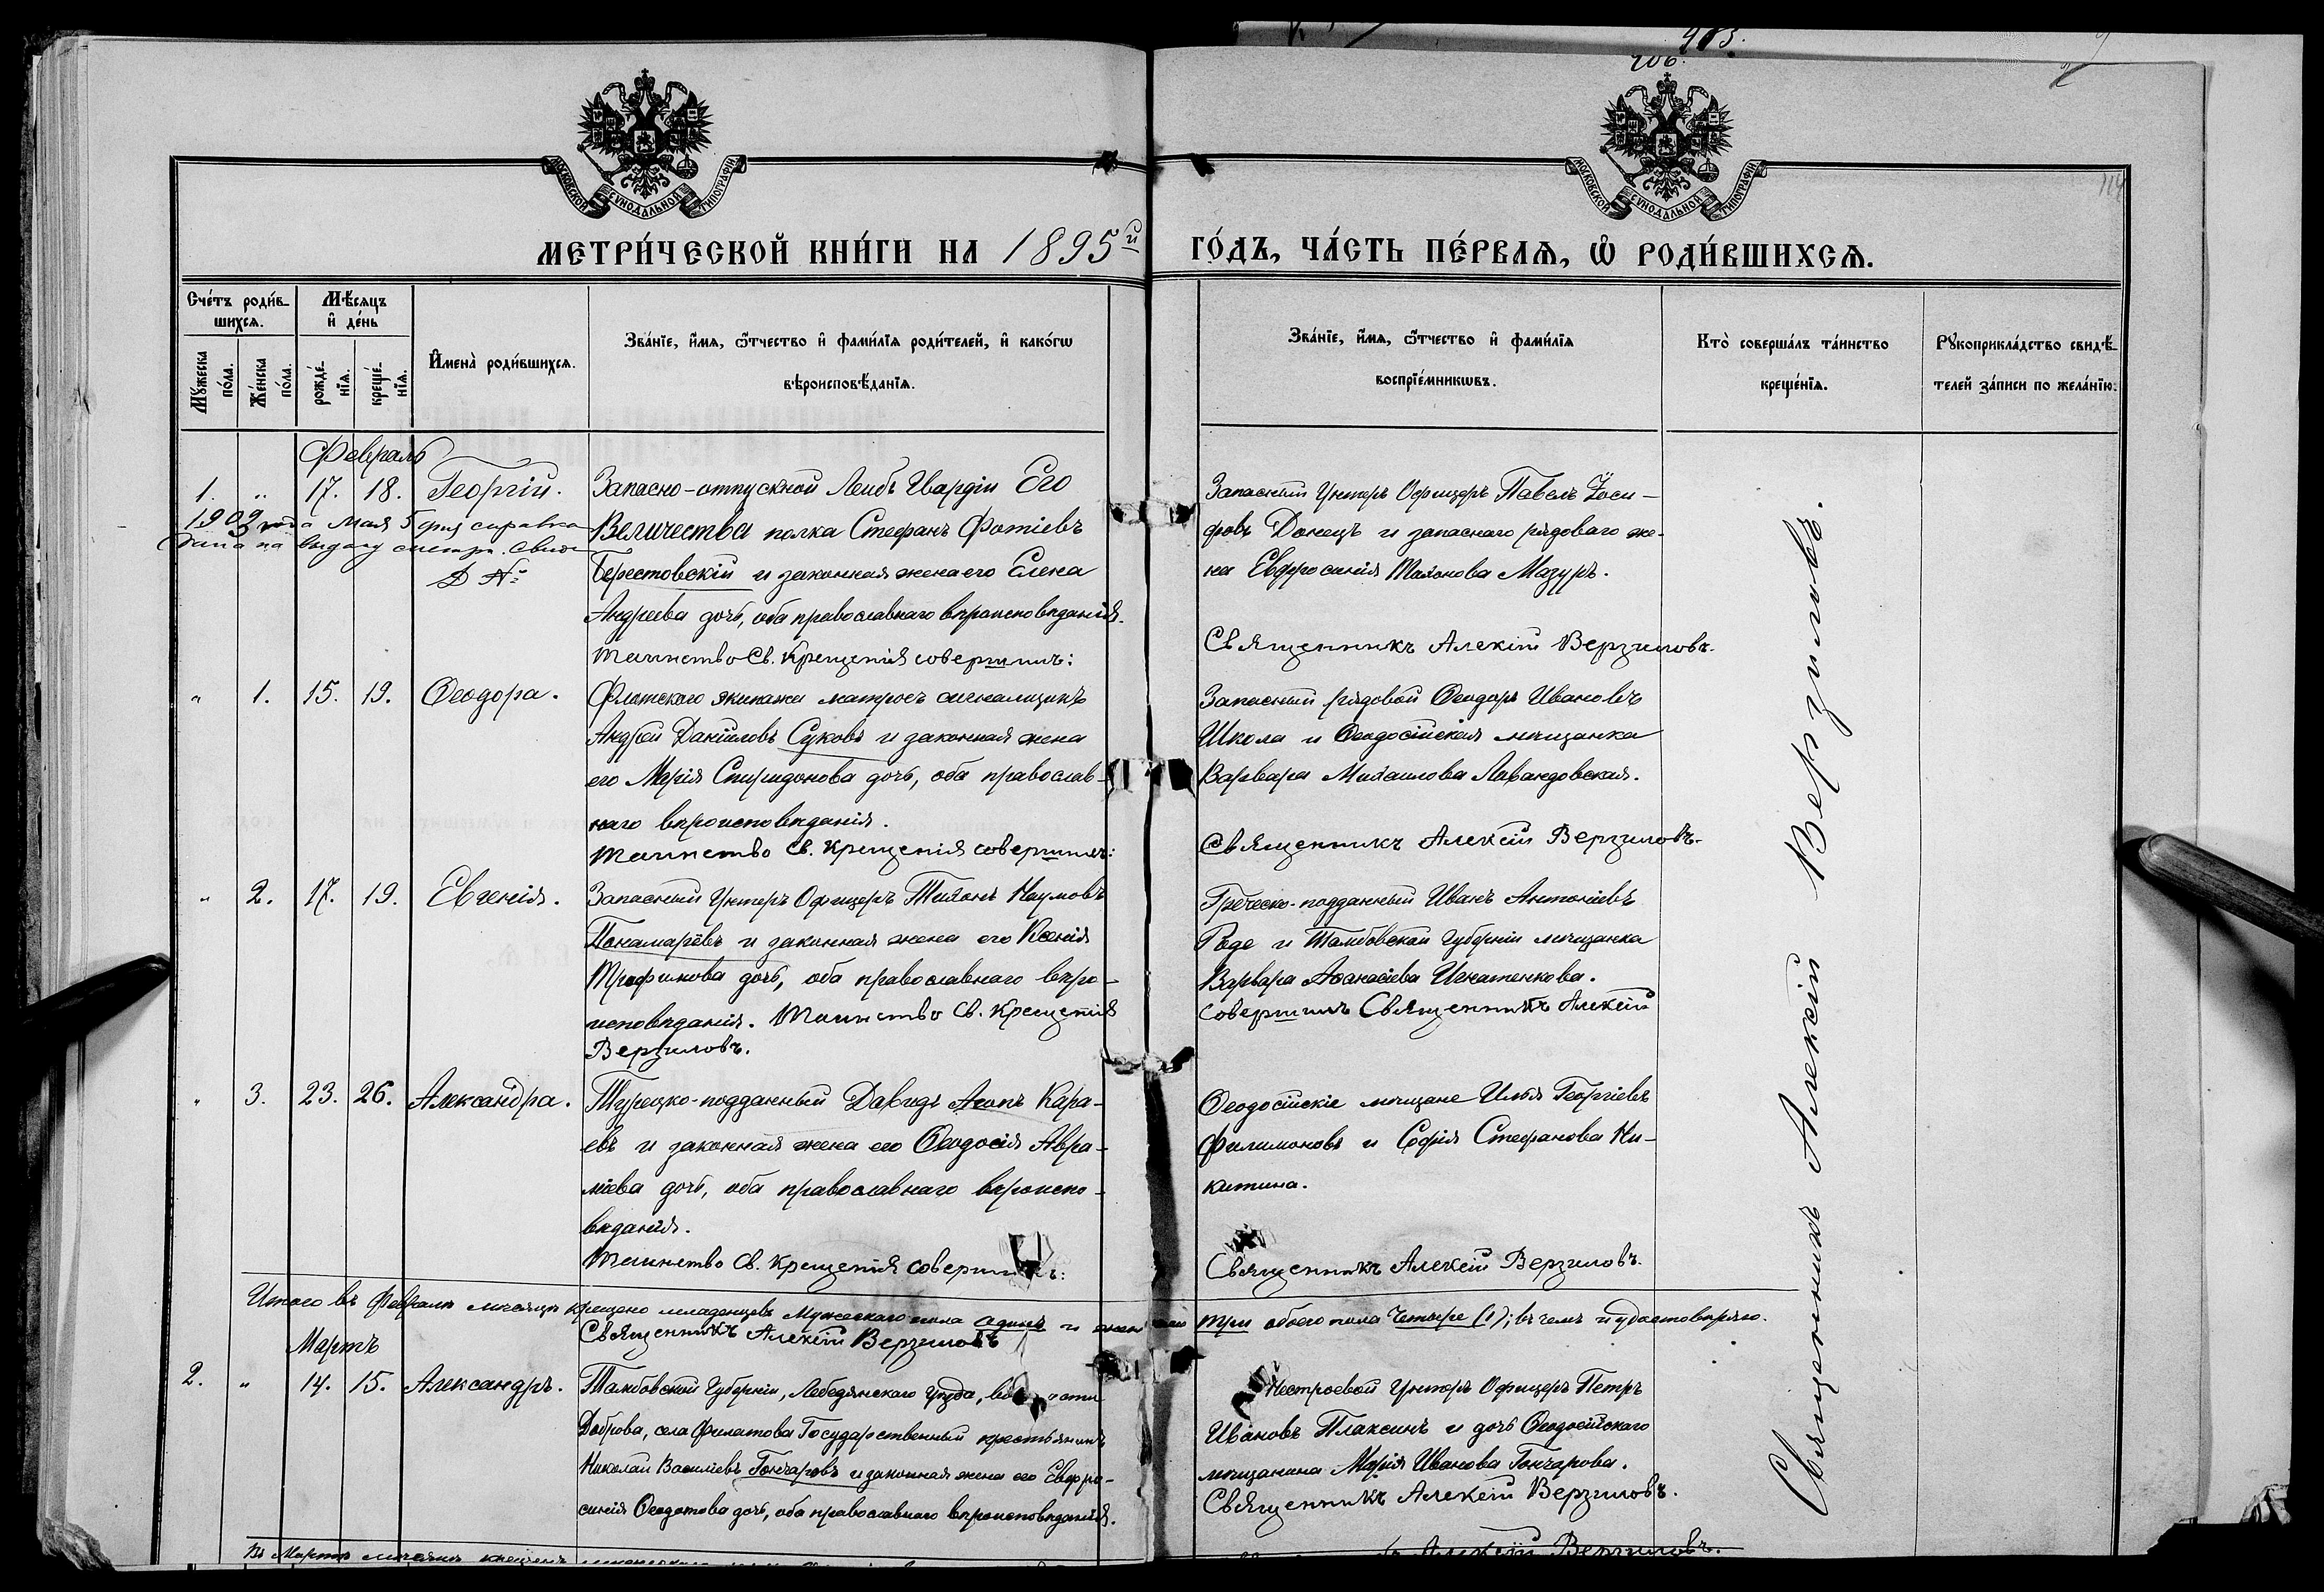 403.
406.
114
МОСКОВСКОЙ СѴНОДАЛЬНОЙ ТИПОГРАФІИ
МОСКОВСКОЙ СѴНОДАЛЬНОЙ ТИПОГРАФІИ
МЕТРИ́ЧЕСКОЙ КНИ́ГИ НА 1895й ГО́ДЪ, ЧА́СТЬ ПЕ́РВАѦ, Ѡ҆ РОДИ́ВШИХСѦ.
Сче́тъ роди́в-
шихсѧ.
Мꙋ́жеска по́ла.
Же́нска по́ла.
Мѣ́сѧцъ
и҆ де́нь
рожде́-
нїѧ.
креще́-
нїѧ.
И҆мена̀ роди́вшихсѧ.
Зва́нїе, и҆́мѧ, ѻ҆́тчество и҆ фами́лїѧ роди́телей, и҆ како́гѡ
вѣроисповѣ́данїѧ.
Зва́нїе, и҆́мѧ, ѻ҆́тчество и҆ фами́лїѧ
воспрїе́мникѡвъ.
Кто̀ соверша́лъ та́инство
креще́нїѧ.
Рꙋкоприкла́дство свидѣ́-
телей за́писи по жела́нїю.
Февраль
1. " 17. 18. Георгій.
1902 года Мая 5 дня справка
дана на выдачу метр. свид.
Запасно-отпускной Лейбъ Гвардіи Его
Величества полка Стефанъ Фотіевъ
Берестовскій и законная жена его Елена
Андреева дочь, оба православнаго вѣроисповѣданія.
Таинство Св. Крещенія совершилъ:
Запасный Унтеръ Офицеръ Павелъ Іоси-
фовъ Донецъ и запаснаго рядоваго же-
на Евфросинія Тихонова Мазуръ.
Священникъ Алексій Верзиловъ.
" 1. 15. 19. Ѳеодора.
Флотскаго экипажа матросъ сигнальщикъ
Андрей Даніиловъ Суковъ и законная жена
его Марія Спиридонова дочь, оба православ-
наго вѣроисповѣданія.
Таинство Св. Крещенія совершилъ:
Запасный рядовой Ѳеодоръ Ивановъ
Школа и Ѳеодосійская мѣщанка
Варвара Михаилова Левандовская.
Священникъ Алексій Верзиловъ.
" 2. 17. 19. Евгенія.
Запасный Унтеръ Офицеръ Тихонъ Наумовъ
Понамарёвъ и законная жена его Ксенія
Трофимова дочь, оба православнаго вѣро-
исповѣданія. Таинство Св. Крещенія
Верзиловъ.
Греческо-подданный Иванъ Антоніевъ
Роде и Тамбовской Губерніи мѣщанка
Варвара Аѳанасіева Игнатенкова.
совершилъ Священникъ Алексій
" 3. 23. 26. Александра.
Турецко-подданный Давидъ Агопъ Кара-
евъ и законная жена его Ѳеодосія Авра-
міева дочь, оба православнаго вѣроиспо-
вѣданія.
Таинство Св. Крещенія совершилъ:
Ѳеодосійскіе мѣщане Илья Георгіевъ
Филимоновъ и Софія Стефанова Ни-
китина.
Священникъ Алексій Верзиловъ.
Итого въ Февралѣ мѣсяцѣ крещено младенцевъ Мужескаго пола одинъ и три обоего пола Четыре; въ чемъ и удостовѣряю.
Священникъ Алексій Верзиловъ
Мартъ
2. " 14. 15. Александръ.
Тамбовской Губерніи, Лебедянскаго уѣзда,
Доброва, села Филатова Государственный крестьянинъ
Николай Василіевъ Гончаровъ и законная жена его Евфро-
синія Ѳеодотова дочь, оба православнаго вѣроисповѣданія.
Нестроевой Унтеръ Офицеръ Петръ
Ивановъ Плаксинъ и дочь Ѳеодосійскаго
мѣщанина Марія Иванова Гончарова.
Священникъ Алексій Верзиловъ.
Въ Мартѣ мѣсяцѣ
Алексій Верзиловъ.
Священникъ Алексій Верзиловъ.